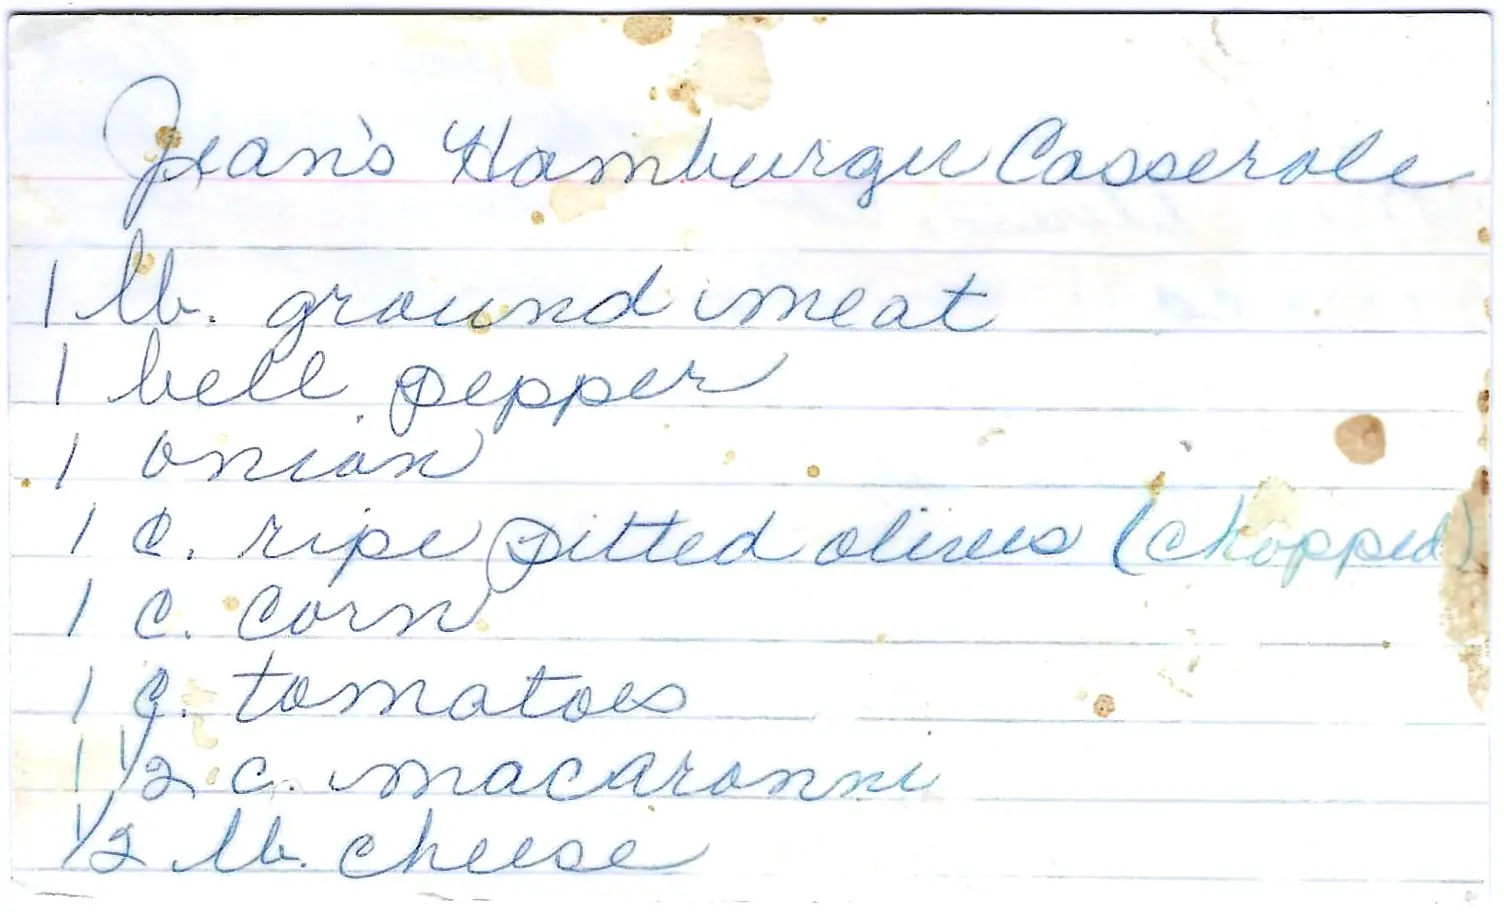 Jean's Hamburger Casserole
1 lb. ground meat
1 bell pepper
1 onion
1 c. ripe pitted olives (chopped)
1 c. corn
1 c. tomatoes
1 1/2 c. macaronni
1/2 lb. cheese